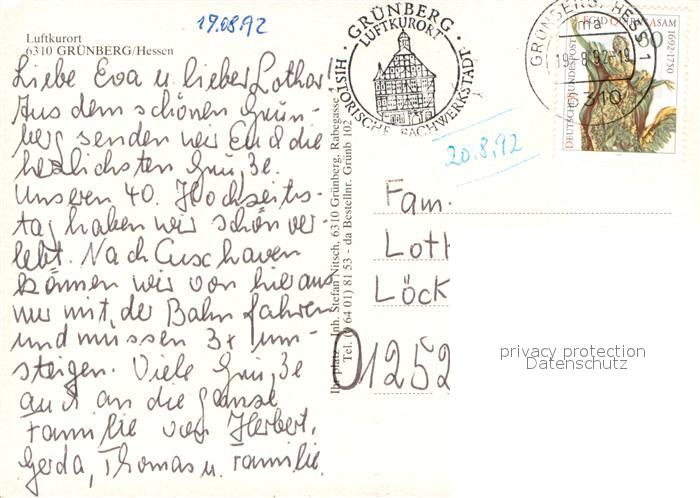 19.08.92
Luftkurort
6310 GRÜNBERG/Hessen
Liebe Eva u. lieber Lothar!
Aus dem schönen Grün-
berg senden wir Euch die
herzlichsten Grüße.
Unseren 40. Hochzeits-
tag haben wir schön ver-
lebt. Nach Cuxhaven
können wir von hier aus
nur mit der Bahn fahren
und müssen 3x um-
steigen. Viele Grüße
auch an die ganze
Familie von Herbert,
Gerda, Thomas u. Familie.
Inh. Stefan Nitsch, 6310 Grünberg, Rabegasse
Tel. (0 64 01) 81 53 - da Bestellnr. Grünb 102
· GRÜNBERG ·
LUFTKURORT
HISTORISCHE FACHWERKSTADT
GRÜNBERG, HESS 1
ma
19.-8.92-19
6310
DEUTSCHE BUNDESPOST
EGID QUIRIN ASAM
1692-1750
60
20.8.92
Fam.
Loth
Löck
01252
privacy protection
Datenschutz